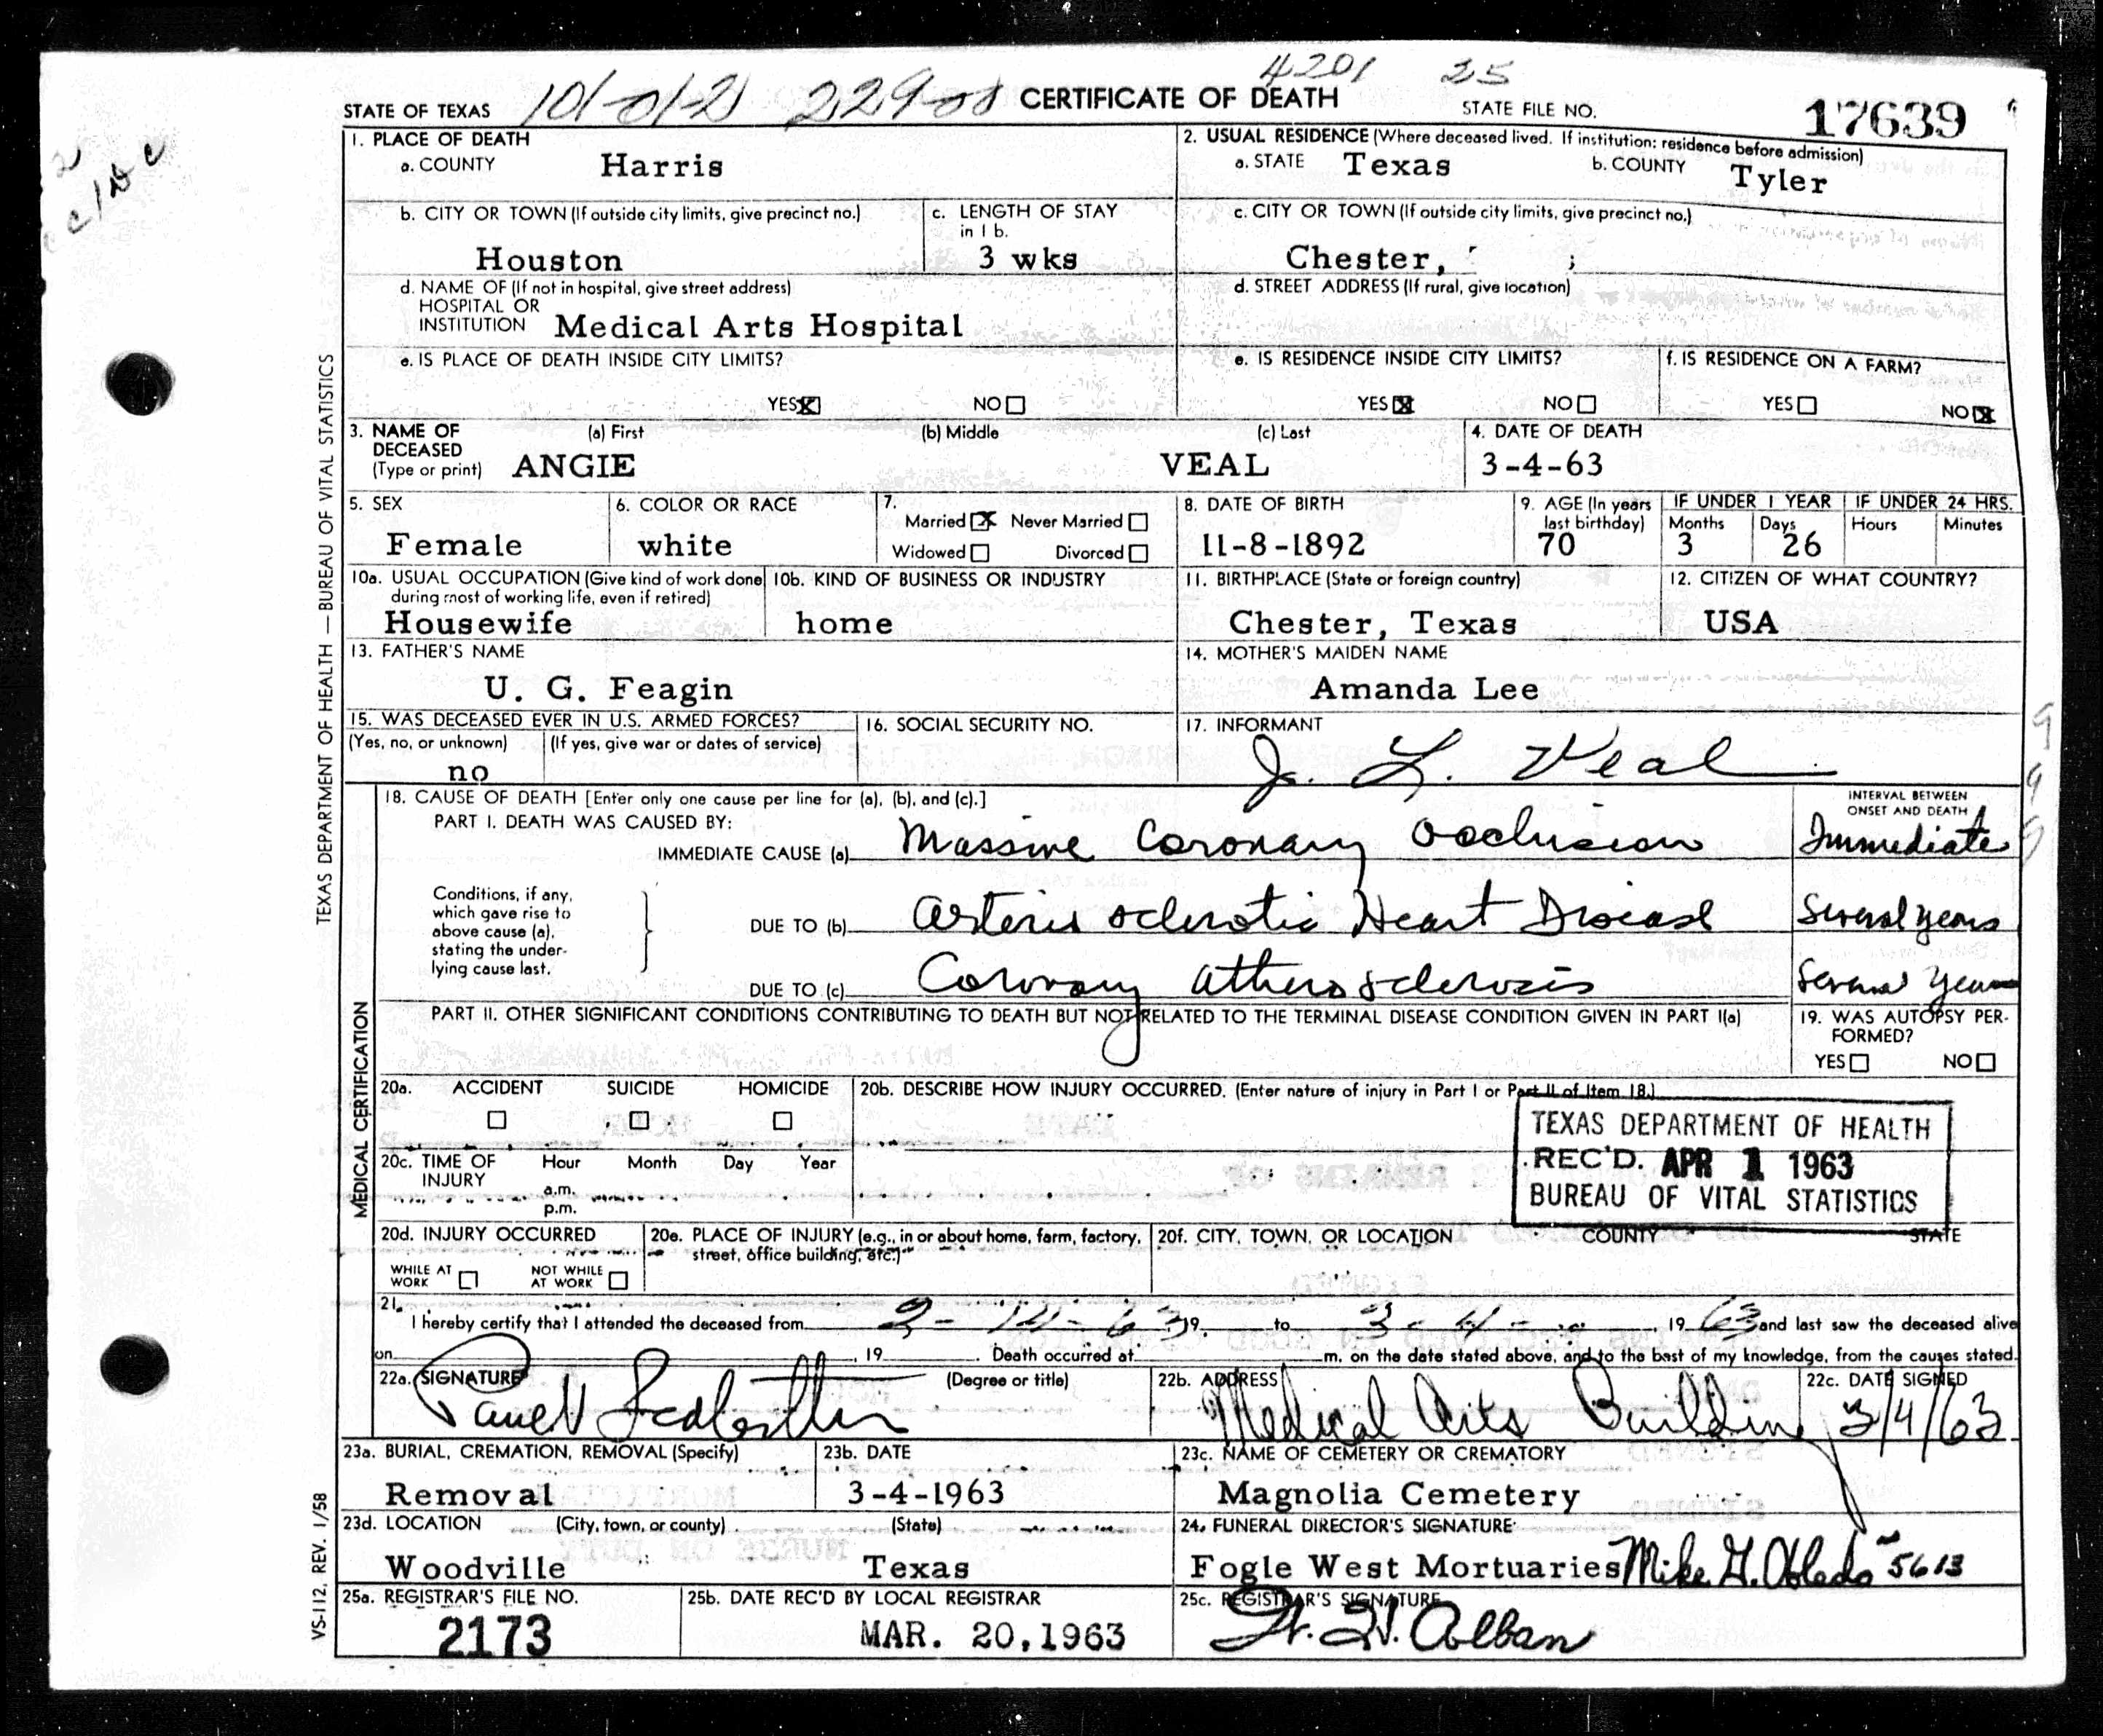 4201 25
STATE OF TEXAS 101-01-2 229-01 CERTIFICATE OF DEATH STATE FILE NO. 17639
1. PLACE OF DEATH
a. COUNTY Harris
2. USUAL RESIDENCE (Where deceased lived. If institution: residence before admission)
a. STATE Texas b. COUNTY Tyler
b. CITY OR TOWN (If outside city limits, give precinct no.)
Houston
c. LENGTH OF STAY
in 1 b.
3 wks
c. CITY OR TOWN (If outside city limits, give precinct no.)
Chester,
d. NAME OF (If not in hospital, give street address)
HOSPITAL OR
INSTITUTION Medical Arts Hospital
d. STREET ADDRESS (If rural, give location)
e. IS PLACE OF DEATH INSIDE CITY LIMITS?
YES☒ NO☐
e. IS RESIDENCE INSIDE CITY LIMITS?
YES☒ NO☐
f. IS RESIDENCE ON A FARM?
YES☐ NO☒
3. NAME OF
DECEASED
(Type or print)
(a) First (b) Middle (c) Last
ANGIE VEAL
4. DATE OF DEATH
3-4-63
5. SEX
Female
6. COLOR OR RACE
white
7.
Married☒ Never Married☐
Widowed☐ Divorced☐
8. DATE OF BIRTH
11-8-1892
9. AGE (In years
last birthday)
70
IF UNDER 1 YEAR
Months Days
3 26
IF UNDER 24 HRS.
Hours Minutes
10a. USUAL OCCUPATION (Give kind of work done
during most of working life, even if retired)
Housewife
10b. KIND OF BUSINESS OR INDUSTRY
home
11. BIRTHPLACE (State or foreign country)
Chester, Texas
12. CITIZEN OF WHAT COUNTRY?
USA
13. FATHER'S NAME
U. G. Feagin
14. MOTHER'S MAIDEN NAME
Amanda Lee
15. WAS DECEASED EVER IN U.S. ARMED FORCES?
(Yes, no, or unknown) (If yes, give war or dates of service)
no
16. SOCIAL SECURITY NO.
17. INFORMANT
J. L. Veal
18. CAUSE OF DEATH [Enter only one cause per line for (a), (b), and (c).]
PART I. DEATH WAS CAUSED BY:
IMMEDIATE CAUSE (a) Massive Coronary Occlusion
INTERVAL BETWEEN
ONSET AND DEATH
Immediate
Conditions, if any,
which gave rise to
above cause (a),
stating the under-
lying cause last.
DUE TO (b) Arterio sclerotic Heart Disease Several years
DUE TO (c) Coronary Atherosclerosis Several years
PART II. OTHER SIGNIFICANT CONDITIONS CONTRIBUTING TO DEATH BUT NOT RELATED TO THE TERMINAL DISEASE CONDITION GIVEN IN PART I(a)
19. WAS AUTOPSY PER-
FORMED?
YES☐ NO☐
20a. ACCIDENT SUICIDE HOMICIDE
☐ ☐ ☐
20b. DESCRIBE HOW INJURY OCCURRED. (Enter nature of injury in Part I or Part II of Item 18.)
TEXAS DEPARTMENT OF HEALTH
REC'D. APR 1 1963
BUREAU OF VITAL STATISTICS
20c. TIME OF
INJURY
Hour Month Day Year
a.m.
p.m.
20d. INJURY OCCURRED
WHILE AT
WORK ☐
NOT WHILE
AT WORK ☐
20e. PLACE OF INJURY (e.g., in or about home, farm, factory,
street, office building, etc.)
20f. CITY, TOWN, OR LOCATION COUNTY STATE
21.
I hereby certify that I attended the deceased from 2-14-63 19 to 3-4- , 19 63 and last saw the deceased alive
on , 19 . Death occurred at m. on the date stated above, and to the best of my knowledge, from the causes stated.
22a. SIGNATURE (Degree or title)
22b. ADDRESS
Medical Arts Building
22c. DATE SIGNED
3/4/63
23a. BURIAL, CREMATION, REMOVAL (Specify)
Removal
23b. DATE
3-4-1963
23c. NAME OF CEMETERY OR CREMATORY
Magnolia Cemetery
23d. LOCATION (City, town, or county) (State)
Woodville Texas
24. FUNERAL DIRECTOR'S SIGNATURE
Fogle West Mortuaries Mike G. Obledo 5613
25a. REGISTRAR'S FILE NO.
2173
25b. DATE REC'D BY LOCAL REGISTRAR
MAR. 20, 1963
25c. REGISTRAR'S SIGNATURE
Alban
TEXAS DEPARTMENT OF HEALTH — BUREAU OF VITAL STATISTICS
MEDICAL CERTIFICATION
VS-112, REV. 1/58